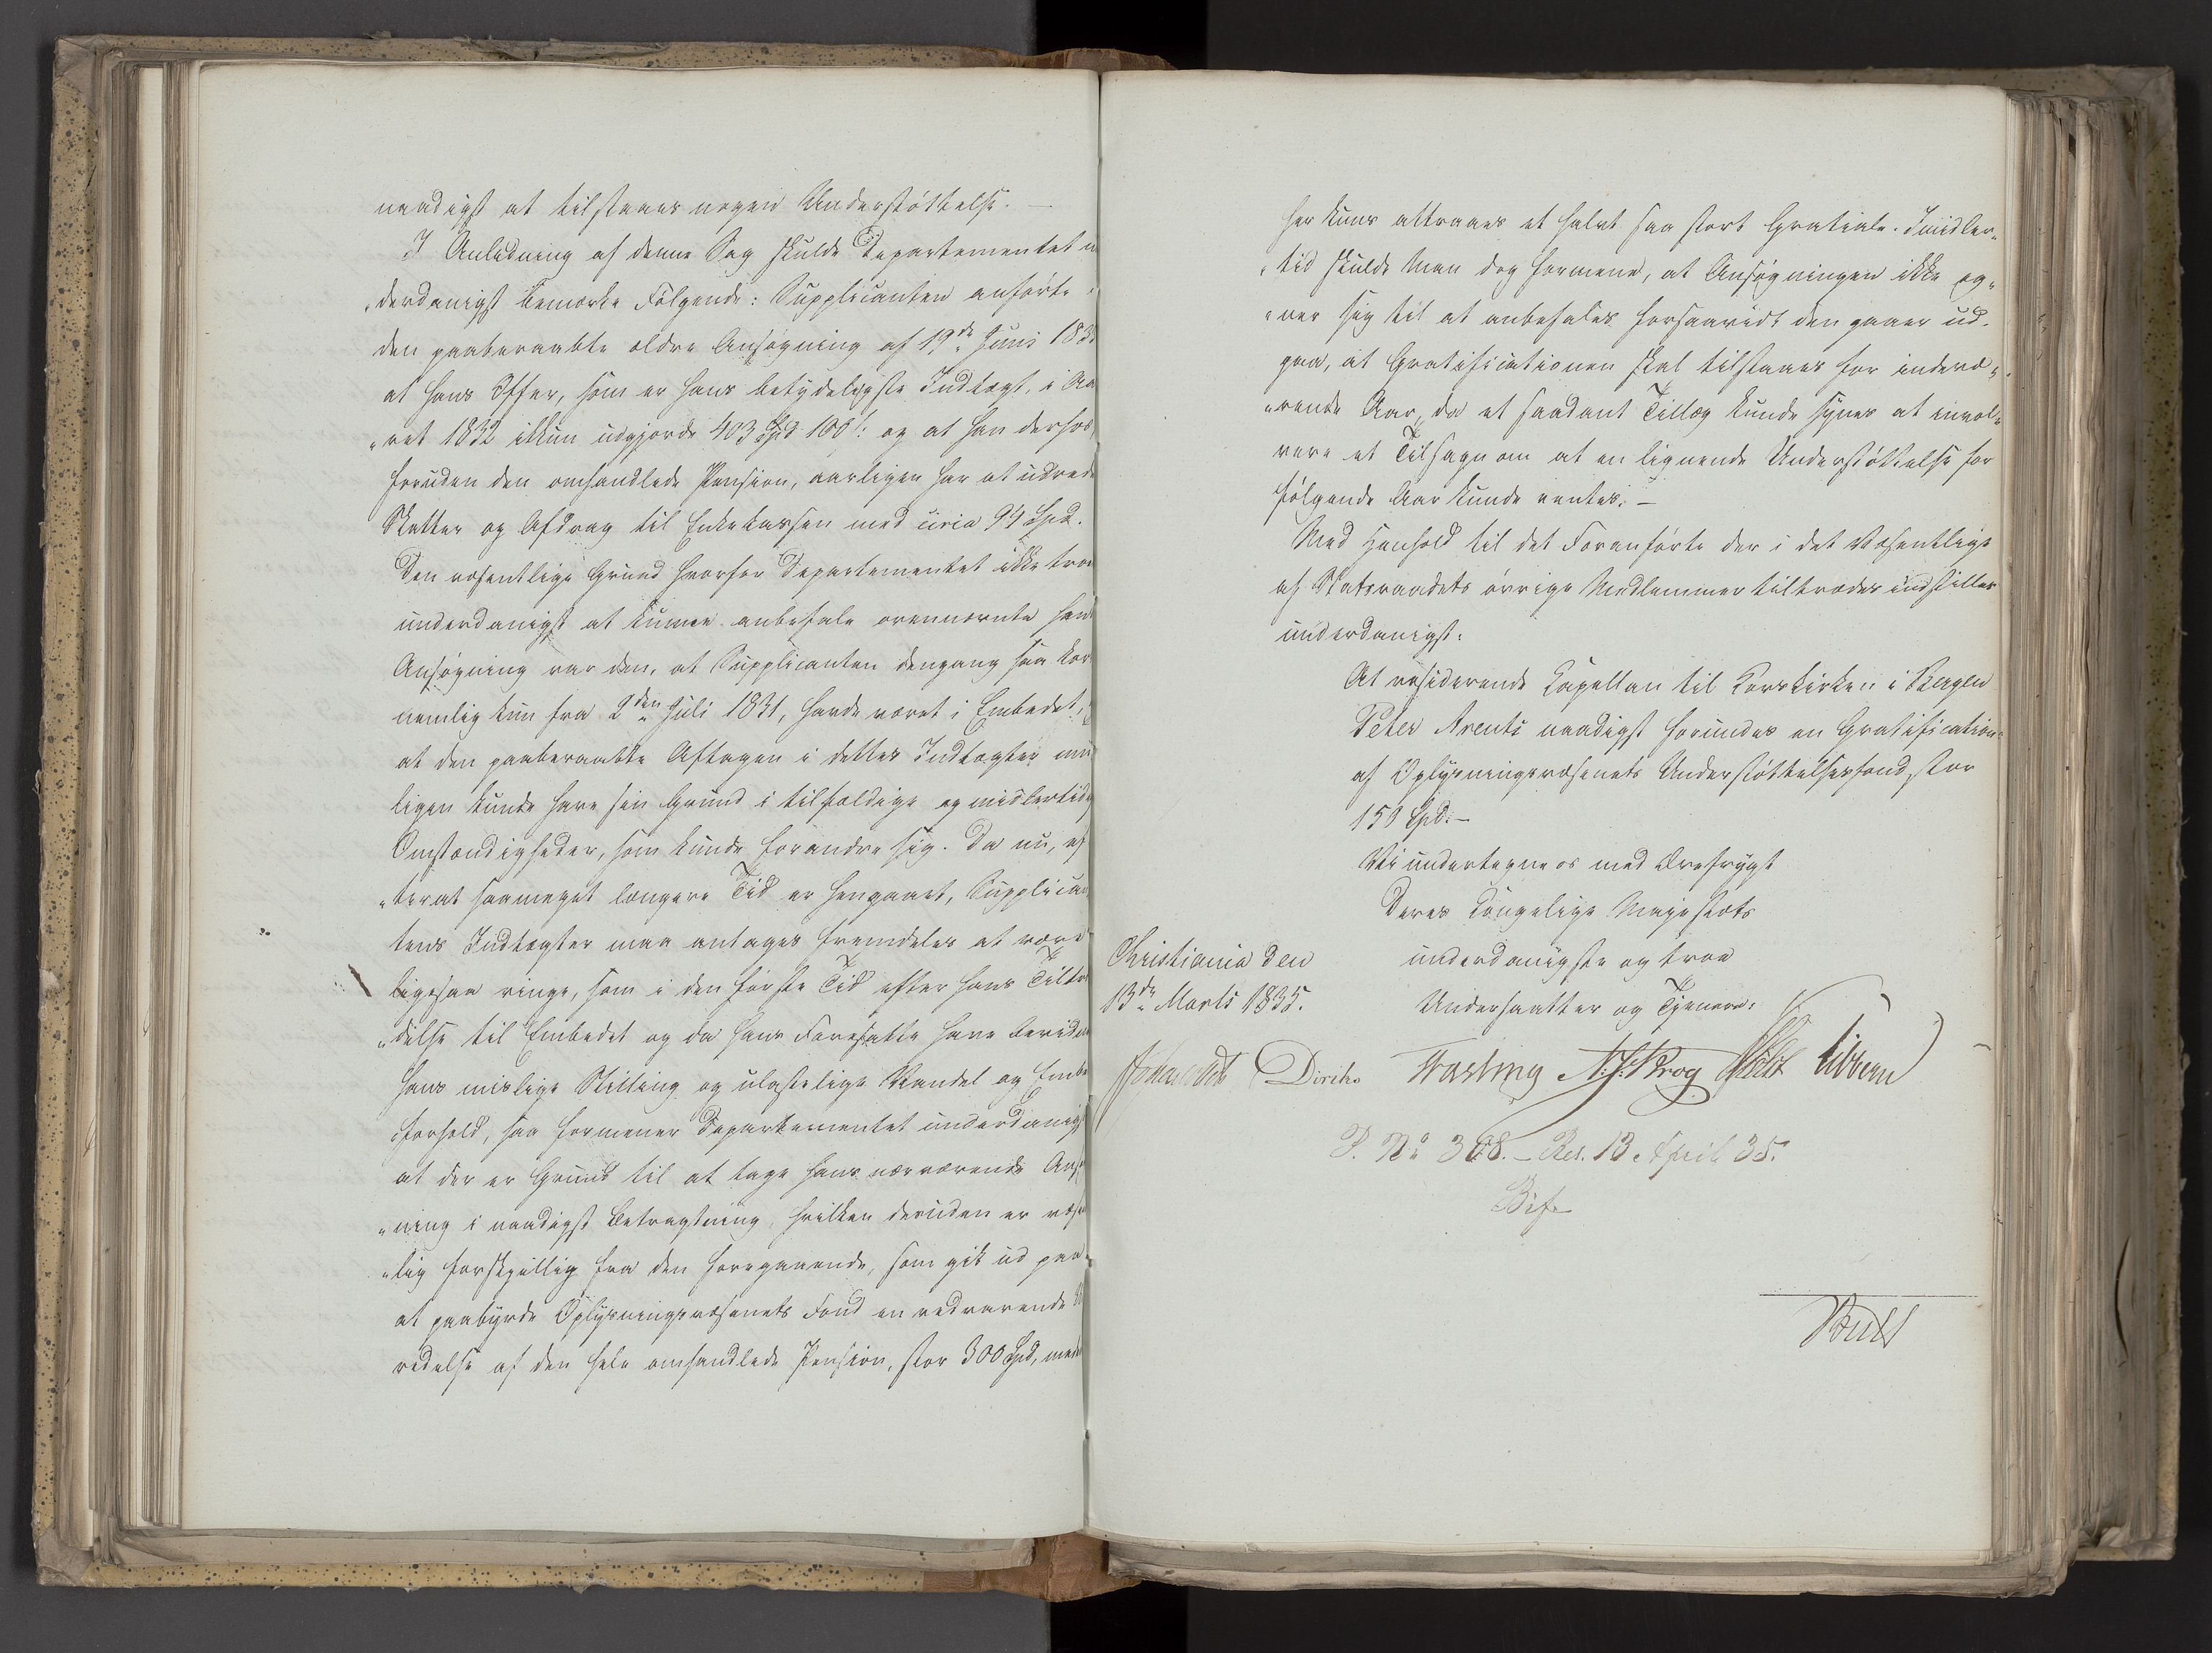 naadigst at tilstaaes nogen Understøttelse. —
I Anledning af denne Sag skulde Departementet u
„derdanigst bemærke Følgende: Supplicanten anførte i
den paaberaabte ældre Ansøgning af 19de Juni 183
at hans Offer, som er hans betydeligste Indtægt, i Aa
„ret 1832 ikkun udgjorde 403 Spd 106 s: og at han derhos,
foruden den omhandlede Pension, aarligen har at udrede
Skatter og Afdrag til Enkekassen med circa 94 Spd.
Den væsentlige Grund hvorfor Departementet ikke troe
underdanigst at kunne anbefale ovennævnte hans
Ansøgning var den, at Supplicanten dengang saa kor
nemlig kun fra 2den Juli 1831, havde været i Embedet,
at den paaberaabte Aftagen i dettes Indtægter mu
ligen kunde have sin Grund i tilfældige og midlertidig
Omstændigheder, som kunde forandre sig. Da nu, ef
„terat saameget længere Tid er hengaaet, Supplican
tens Indtægter maa antages fremdeles at være
ligesaa ringe, som i den første Tid efter hans Tiltræ
„delse til Embedet og da hans Foresatte have bevidne
hans mislige Stilling og ulastelige Vandel og Embe
forhold, saa formener Departementet underdanigst
at der er Grund til at tage hans nærværende Ansø
„ning i naadigst Betragtning, hvilken desuden er væse
„lig forskjellig fra den foregaaende, som gik ud paa
at paabyrde Oplysningsvæsenets Fond en vedvarende U
redelse af den hele omhandlede Pension, stor 300 Spd, meden
her kuns attraaes et halvt saa stort Gratiale. Imidler„
„tid skulde Man dog formene, at Ansøgningen ikke eg„
„ner sig til at anbefales forsaavidt den gaaer ud
paa, at Gratificationen skal tilstaaes for indevæ„
„rende Aar, da et saadant Tillæg kunde synes at invol„
vere et Tilsagn om at en lignende Understøttelse for
følgende Aar kunde ventes. —
Med Henhold til det Foranførte der i det Væsentlige
af Statsraadets øvrige Medlemmer tiltrædes indstilles
underdanigst:
At residerende Kapellan til Korskirken i Bergen
Peter Arentz naadigst forundes en Gratification
af Oplysningsvæsenets Understøttelsesfond, stor
150 Spd. —
Vi undertegne os med Ærefrygt
Deres Kongelige Majestæts
underdanigste og troe
Christiania den
13de Marts 1835.
Undersaatter og Tjenere:
Diriks Fasting N. J. Krog Holst Vibbern
P. No 368. — Res. 13 April 35.
Bif.
Bull